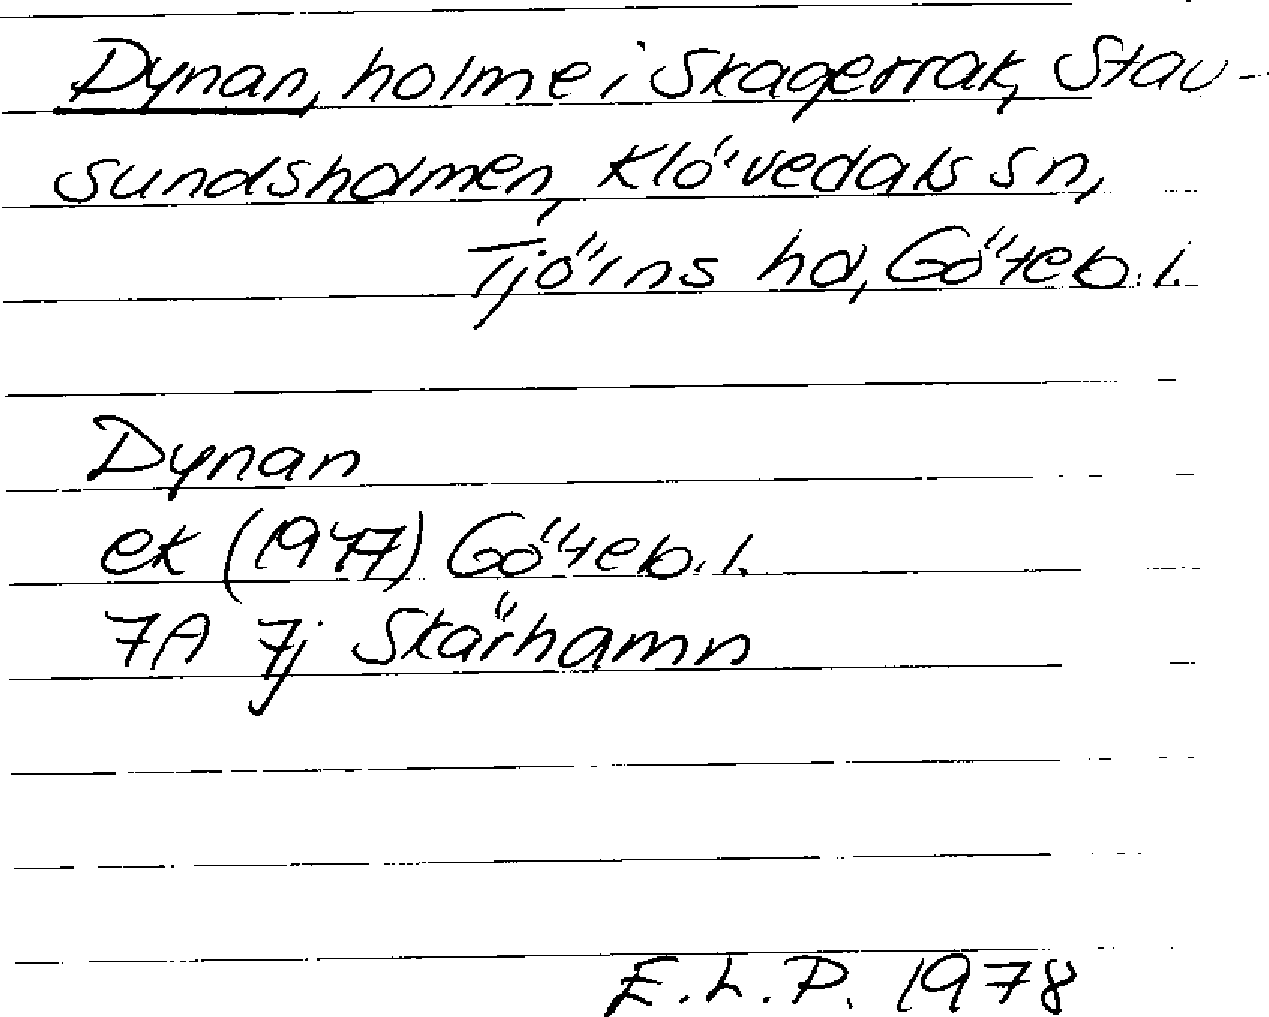 Dynan, holme i Skagerrak, Stav-
sundsholmen, Klövedals sn,
Tjörns hd, Göteb. l.
Dynan
ek (1977) Göteb. l.
7A 7j Skärhamn
E.L.P. 1978